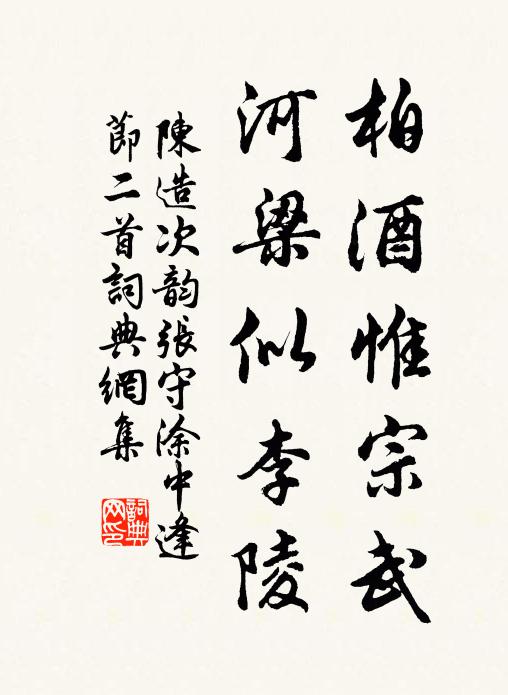 柏酒惟宗武
河梁似李陵
陳造次韵張守涂中逢
節二首詞典網集
詞典
网印